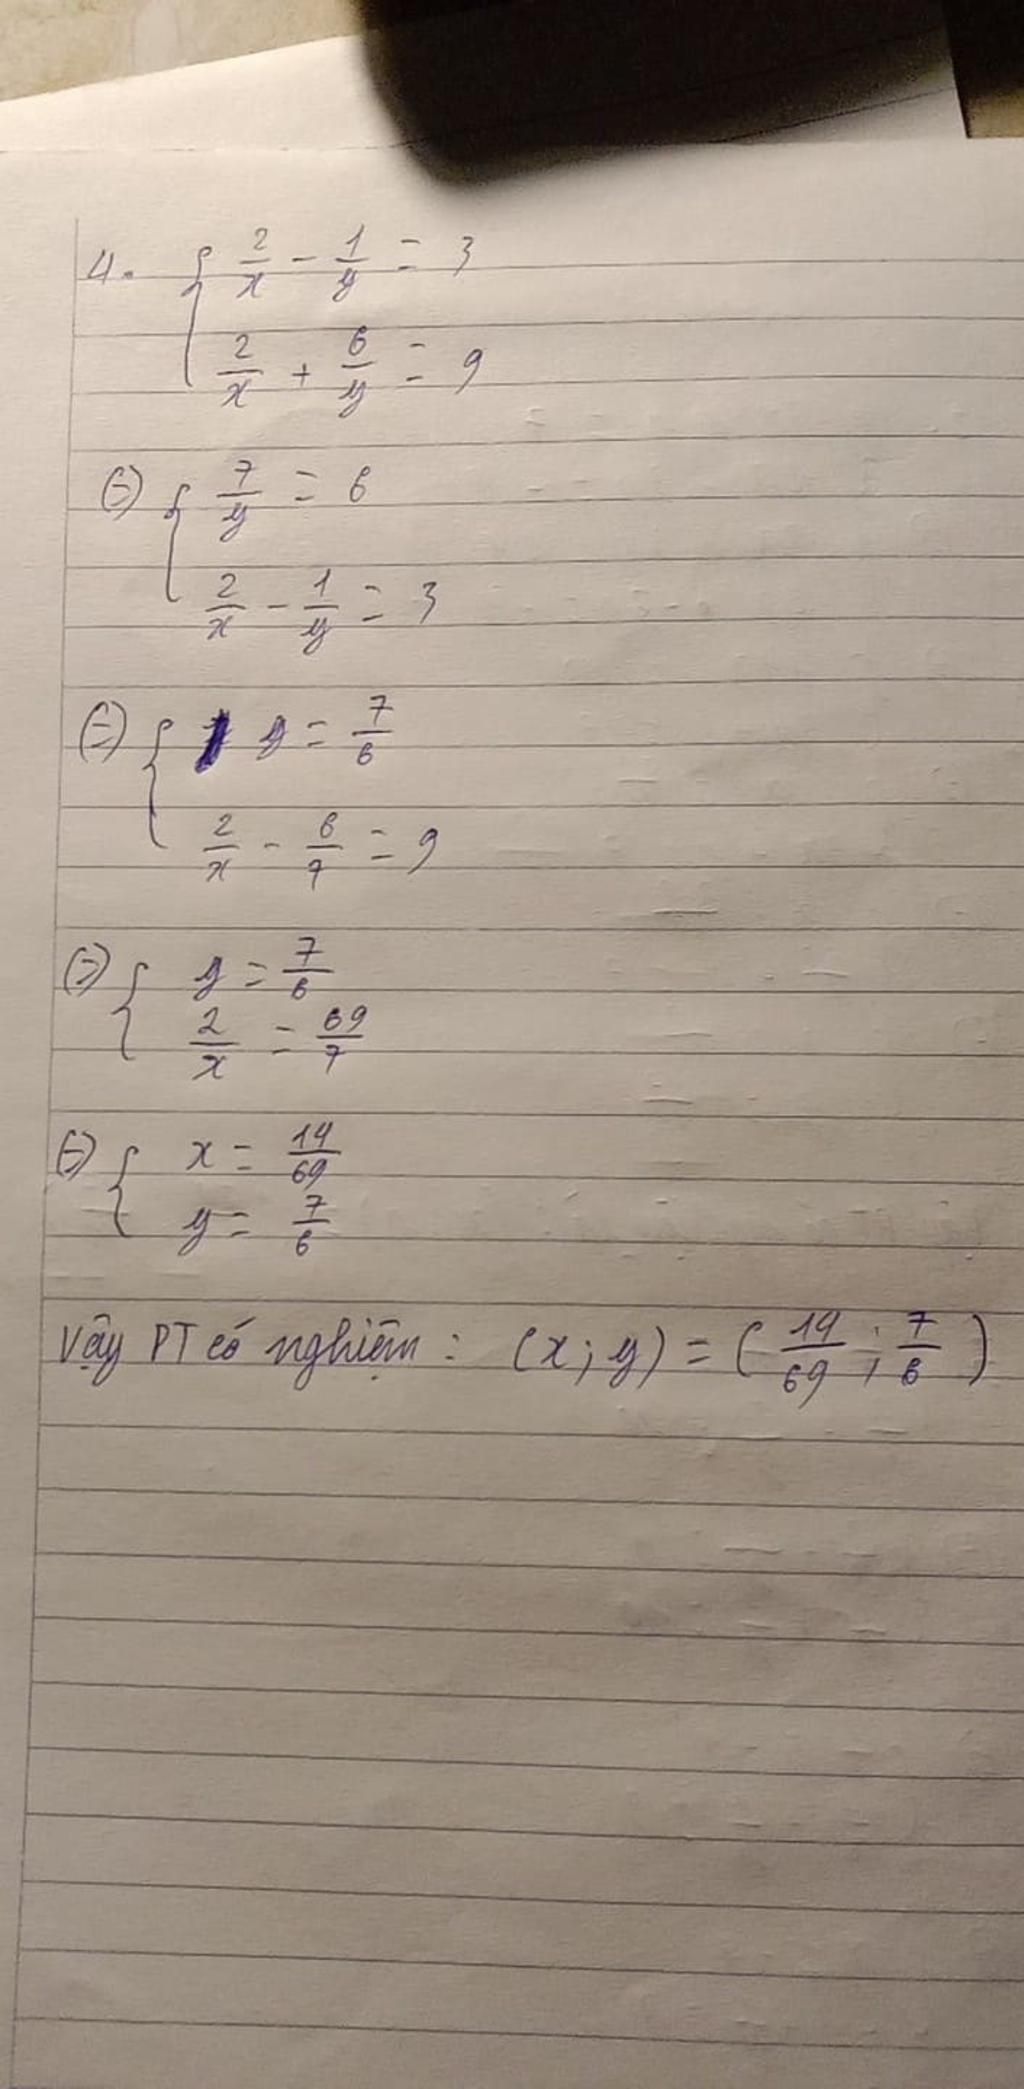 4. { 2/x - 1/y = 3
2/x + 6/y = 9
(=) { 7/y = 6
2/x - 1/y = 3
(=) { y = 7/6
2/x - 6/7 = 9
(=) { y = 7/6
2/x = 69/7
(=) { x = 14/69
y = 7/6
Vậy PT có nghiệm : (x; y) = (14/69 ; 7/6)